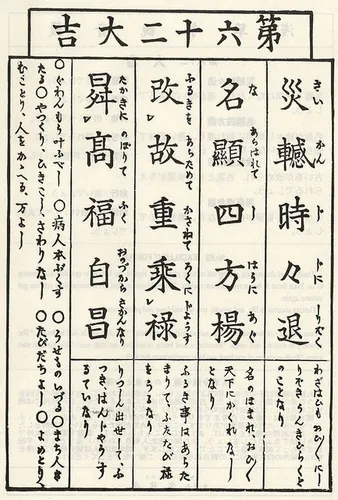 第六十二大吉
さい かん じ じに しりぞく
災轗時々退
わざはひもおひ〱にし
りぞきうんきひらくと
のことなり
な あらはれて し はうに あぐ
名顯四方楊
名のほまれおひ〱
天下にかくれなし
となり
ふるきを あらためて かさねて ろくにじようす
改故重乗禄
ふるき事はあらた
まりてふたたび禄
をうるなり
たかきに のぼりて ふく おのづからさかんなり
昇髙福自昌
りつしん出せして、ふ
つき、はんじやうす
るていなり
○ぐわんもう叶ふべし ○病人本ぷくす ○うせものいづる○まち人き
たる○やづくり、ひきこし、さわりなし ○たびだちよし○よめとり
むことり、人をかゝへる、万よし